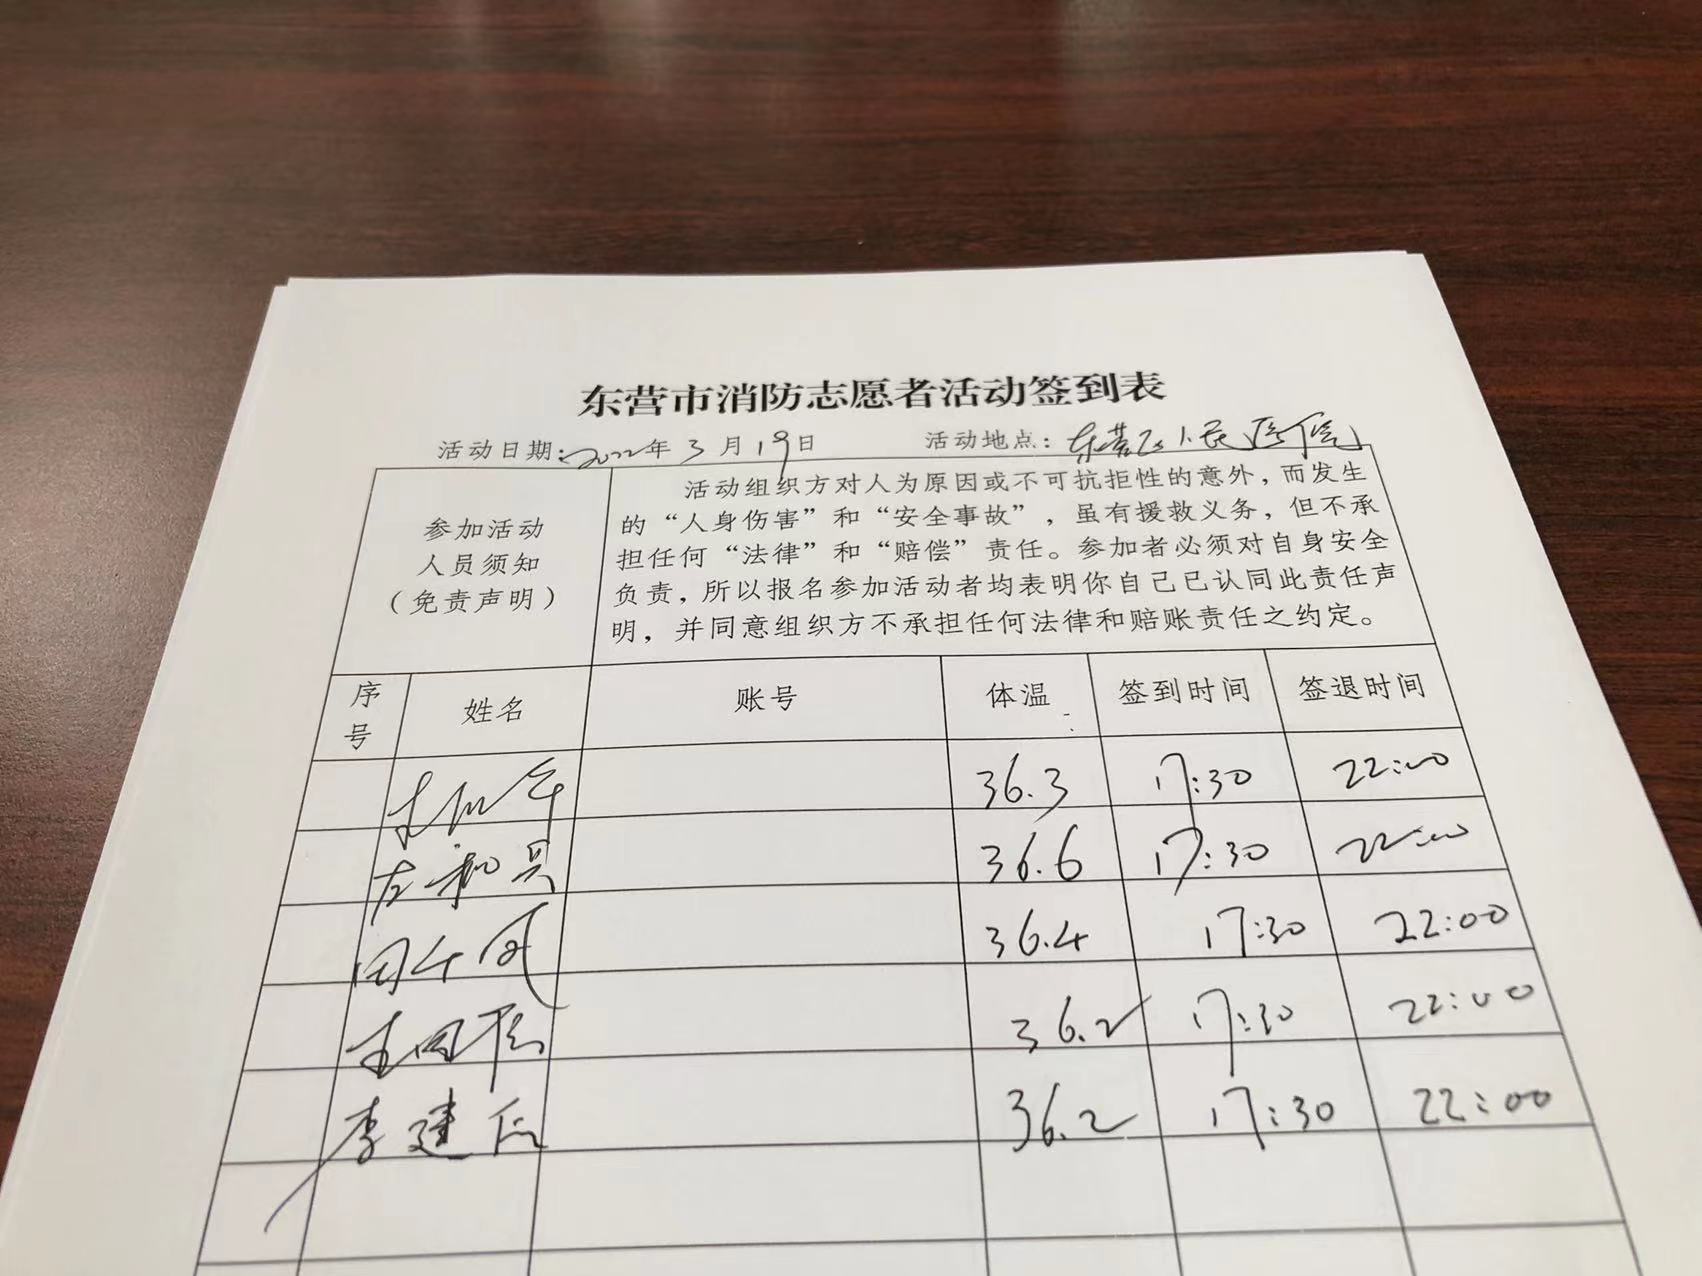 东营市消防志愿者活动签到表
活动日期：2022年3月19日 活动地点：东营区人民医院
参加活动
人员须知
（免责声明）
活动组织方对人为原因或不可抗拒性的意外，而发生
的“人身伤害”和“安全事故”，虽有援救义务，但不承
担任何“法律”和“赔偿”责任。参加者必须对自身安全
负责，所以报名参加活动者均表明你自己已认同此责任声
明，并同意组织方不承担任何法律和赔账责任之约定。
序号 姓名 账号 体温 签到时间 签退时间
36.3 17:30 22:00
36.6 17:30 22:00
36.4 17:30 22:00
36.2 17:30 22:00
李建 36.2 17:30 22:00